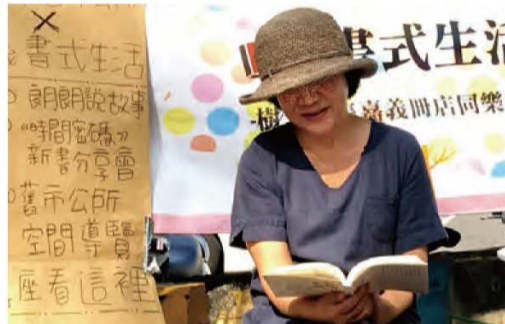 書式生活
朗朗說故事
《時間密碼》
新書分享會
舊市公所
空間導覽
座看這裡
書式生活
嘉義冊店同樂